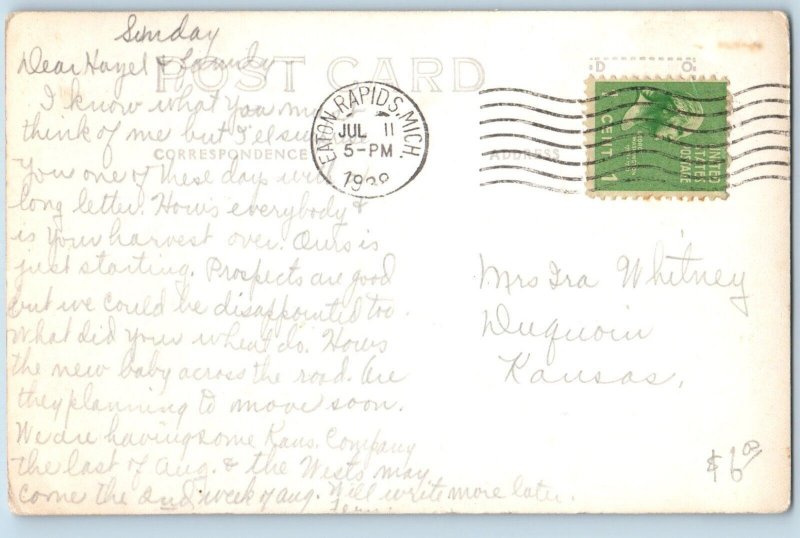 Sunday
Dear Hazel & family
POST CARD
I know what you mu
think of me but I'll su
CORRESPONDENCE
you one of these days
long letter. Hows everybody &
is your harvest over. Ours is
just starting. Prospects are good
but we could be disappointed too.
What did your wheat do. Hows
the new baby across the road. Are
they planning to move soon.
We are having some Kans. Company
the last of Aug. & the Wests may
come the 2nd week of Aug. Will write more later.
EATON RAPIDS, MICH.
JUL 11
5-PM
1938
ADDRESS
UNITED
STATES
POSTAGE
1 CENT 1
Mrs Ira Whitney
Duquoin
Kansas,
$6.00